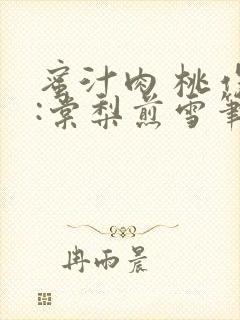 蜜汁肉桃
:棠梨煎雪筆
冉雨晨